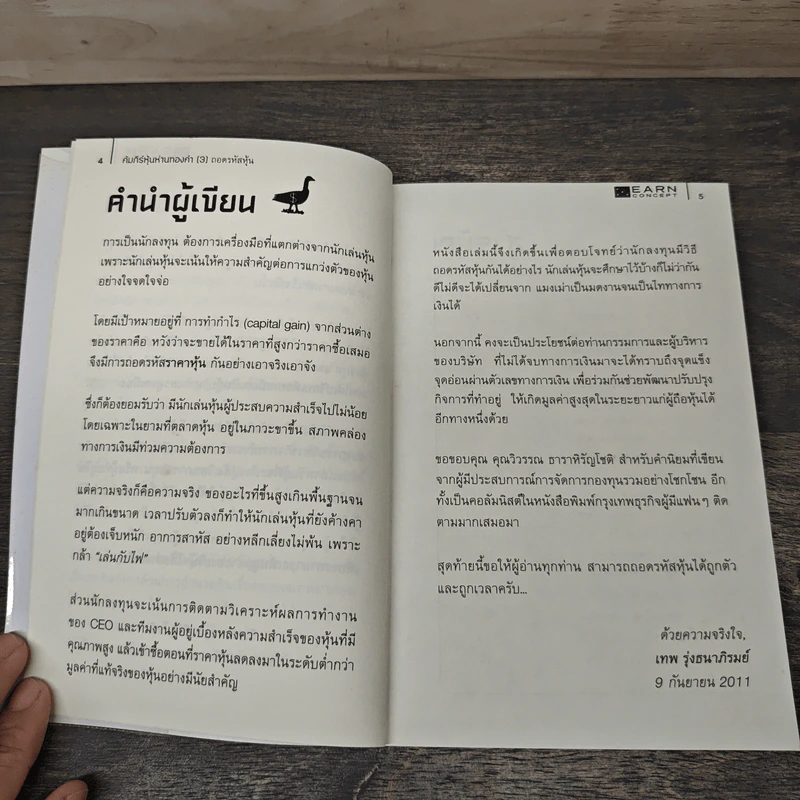 4 คัมภีร์หุ้นห่านทองคำ (3) ถอดรหัสหุ้น
คำนำผู้เขียน
การเป็นนักลงทุน ต้องการเครื่องมือที่แตกต่างจากนักเล่นหุ้น
เพราะนักเล่นหุ้นจะเน้นให้ความสำคัญต่อการแกว่งตัวของหุ้น
อย่างใจจดใจจ่อ
โดยมีเป้าหมายอยู่ที่ การทำกำไร (capital gain) จากส่วนต่าง
ของราคาคือ หวังว่าจะขายได้ในราคาที่สูงกว่าราคาซื้อเสมอ
จึงมีการถอดรหัสราคาหุ้น กันอย่างเอาจริงเอาจัง
ซึ่งก็ต้องยอมรับว่า มีนักเล่นหุ้นผู้ประสบความสำเร็จไปไม่น้อย
โดยเฉพาะในยามที่ตลาดหุ้น อยู่ในภาวะขาขึ้น สภาพคล่อง
ทางการเงินมีท่วมความต้องการ
แต่ความจริงก็คือความจริง ของอะไรที่ขึ้นสูงเกินพื้นฐานจน
มากเกินขนาด เวลาปรับตัวลงก็ทำให้นักเล่นหุ้นที่ยังค้างคา
อยู่ต้องเจ็บหนัก อาการสาหัส อย่างหลีกเลี่ยงไม่พ้น เพราะ
กล้า "เล่นกับไฟ"
ส่วนนักลงทุนจะเน้นการติดตามวิเคราะห์ผลการทำงาน
ของ CEO และทีมงานผู้อยู่เบื้องหลังความสำเร็จของหุ้นที่มี
คุณภาพสูง แล้วเข้าซื้อตอนที่ราคาหุ้นลดลงมาในระดับต่ำกว่า
มูลค่าที่แท้จริงของหุ้นอย่างมีนัยสำคัญ
EARN
CONCEPT
5
หนังสือเล่มนี้จึงเกิดขึ้นเพื่อตอบโจทย์ว่านักลงทุนมีวิธี
ถอดรหัสหุ้นกันได้อย่างไร นักเล่นหุ้นจะศึกษาไว้บ้างก็ไม่ว่ากัน
ดีไม่ดีจะได้เปลี่ยนจาก แมงเม่าเป็นมดงานจนเป็นไททางการ
เงินได้
นอกจากนี้ คงจะเป็นประโยชน์ต่อท่านกรรมการและผู้บริหาร
ของบริษัท ที่ไม่ได้จบทางการเงินมาจะได้ทราบถึงจุดแข็ง
จุดอ่อนผ่านตัวเลขทางการเงิน เพื่อร่วมกันช่วยพัฒนาปรับปรุง
กิจการที่ทำอยู่ ให้เกิดมูลค่าสูงสุดในระยะยาวแก่ผู้ถือหุ้นได้
อีกทางหนึ่งด้วย
ขอขอบคุณ คุณวิวรรณ ธาราหิรัญโชติ สำหรับคำนิยมที่เขียน
จากผู้มีประสบการณ์การจัดการกองทุนรวมอย่างโชกโชน อีก
ทั้งเป็นคอลัมนิสต์ในหนังสือพิมพ์กรุงเทพธุรกิจผู้มีแฟนๆ ติด
ตามมากเสมอมา
สุดท้ายนี้ขอให้ผู้อ่านทุกท่าน สามารถถอดรหัสหุ้นได้ถูกตัว
และถูกเวลาครับ...
ด้วยความจริงใจ,
เทพ รุ่งธนาภิรมย์
9 กันยายน 2011